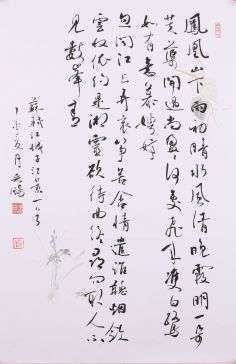 鳳凰山下雨初晴水風清晚霞明一朵
芙蕖開過尚盈盈何處飛來雙白鷺
如有意慕娉婷
忽聞江上弄哀箏苦含情遣誰聽烟斂
雲收依約是湘靈欲待曲終尋問取人不
見數峯青
蘇軾江城子江景一首